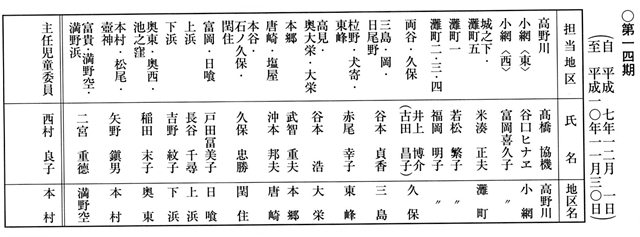 ○第一四期
(自 平成 七年一二月 一日
至 平成一〇年一一月三〇日)
担当地区 氏名 地区名
高野川 髙橋 協機 高野川
小網〈東〉 谷口ヒナヱ 小網
小網〈西〉 富岡喜久子 〃
城之下・
灘町五 米湊 正夫 灘町
灘町一 若松 繁子 〃
灘町二・三・四 福岡 明子 〃
両谷・久保 井上 博介 久保
(古田 昌子)
三島・岡・
日尾野 谷本 貞香 三島
柆野・犬寄・
東峰 赤尾 幸子 東峰
高見・
奥大栄・大栄 谷本 浩 大栄
本郷 武智 重夫 本郷
唐崎・塩屋 沖本 邦夫 唐崎
本谷・
石ノ久保・
閏住 久保 忠勝 閏住
富岡・日喰 戸田冨美子 日喰
上浜 長谷 千尋 上浜
下浜 吉野 紋子 下浜
奥東・奥西・
池之窪 稲田 末子 奥東
本村・松尾・
壺神 矢野 鎭男 本村
富貴・満野空・
満野浜 二宮 重徳 満野空
主任児童委員 西村 良子 本村